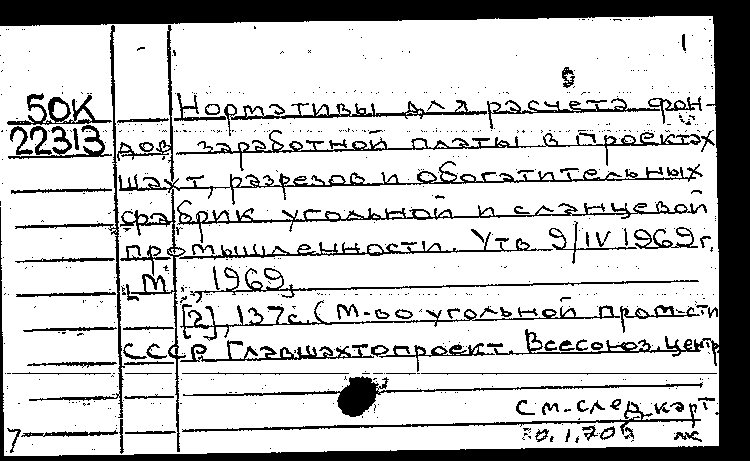 1
50К Нормативы для расчета фон-
22313 дов заработной платы в проектах
шахт, разрезов и обогатительных
фабрик угольной и сланцевой
промышленности. Утв 9/IV 1969 г.
М., 1969,
[2], 137с. (М-во угольной пром-сти
СССР Главшахтопроект. Всесоюз. центр
См. след карт.
7